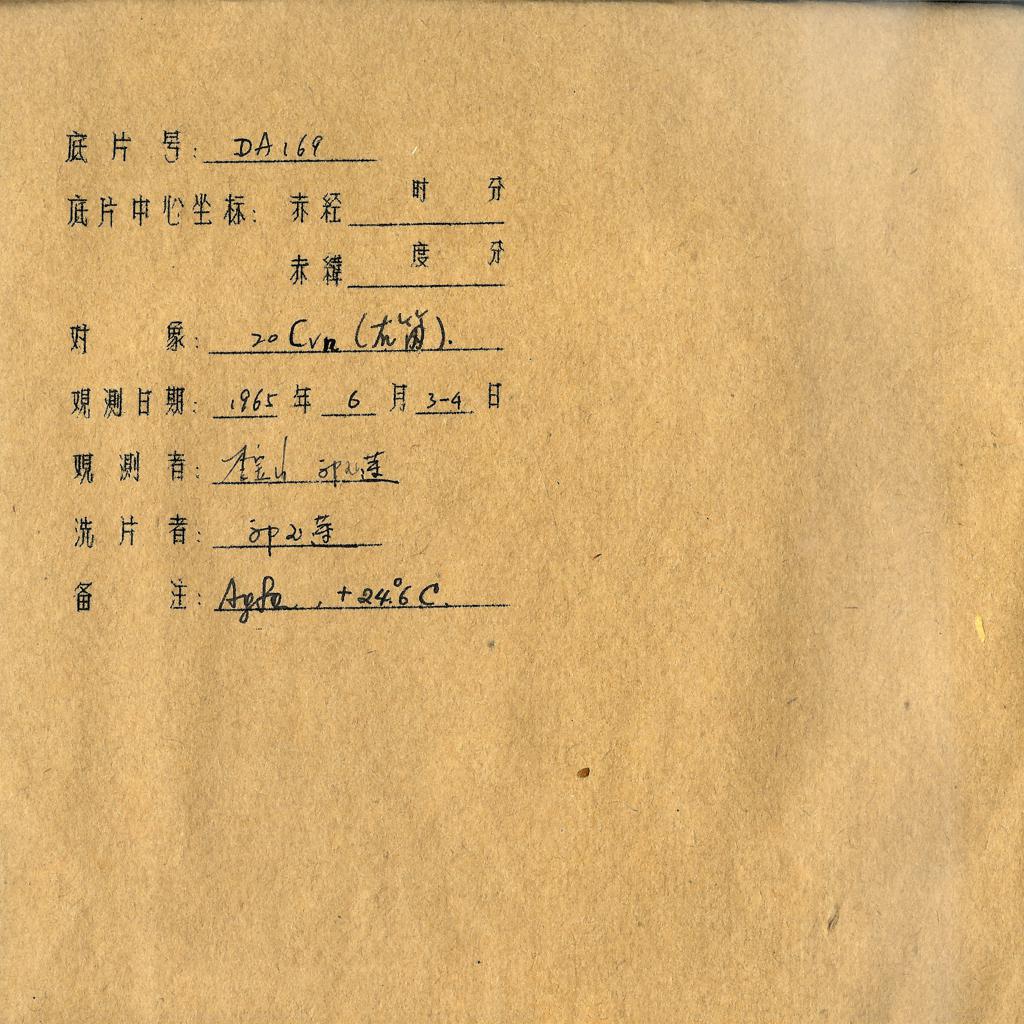 底片号: DA169
底片中心坐标: 赤经 时 分
赤緯 度 分
对象: 20 Cvn
观测日期: 1965 年 6 月 3-4 日
观测者:
洗片者:
备注: Agfa, +24.°6 C.